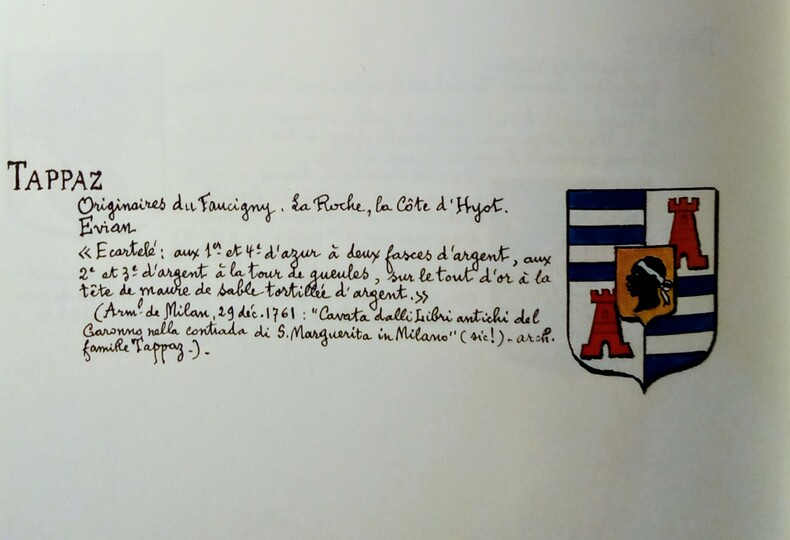 TAPPAZ
Originaires du Faucigny. La Roche, la Côte d'Hyot.
Evian
« Ecartelé : aux 1er et 4e d'azur à deux fasces d'argent, aux
2e et 3e d'argent à la tour de gueules, sur le tout d'or à la
tête de maure de sable tortillée d'argent. »
(Arml de Milan, 29 déc. 1761 : "Cavata dalli Libri antichi del
Garonno nella contrada di S. Marguerita in Milano" (sic!) - arch.
famille Tappaz -) -